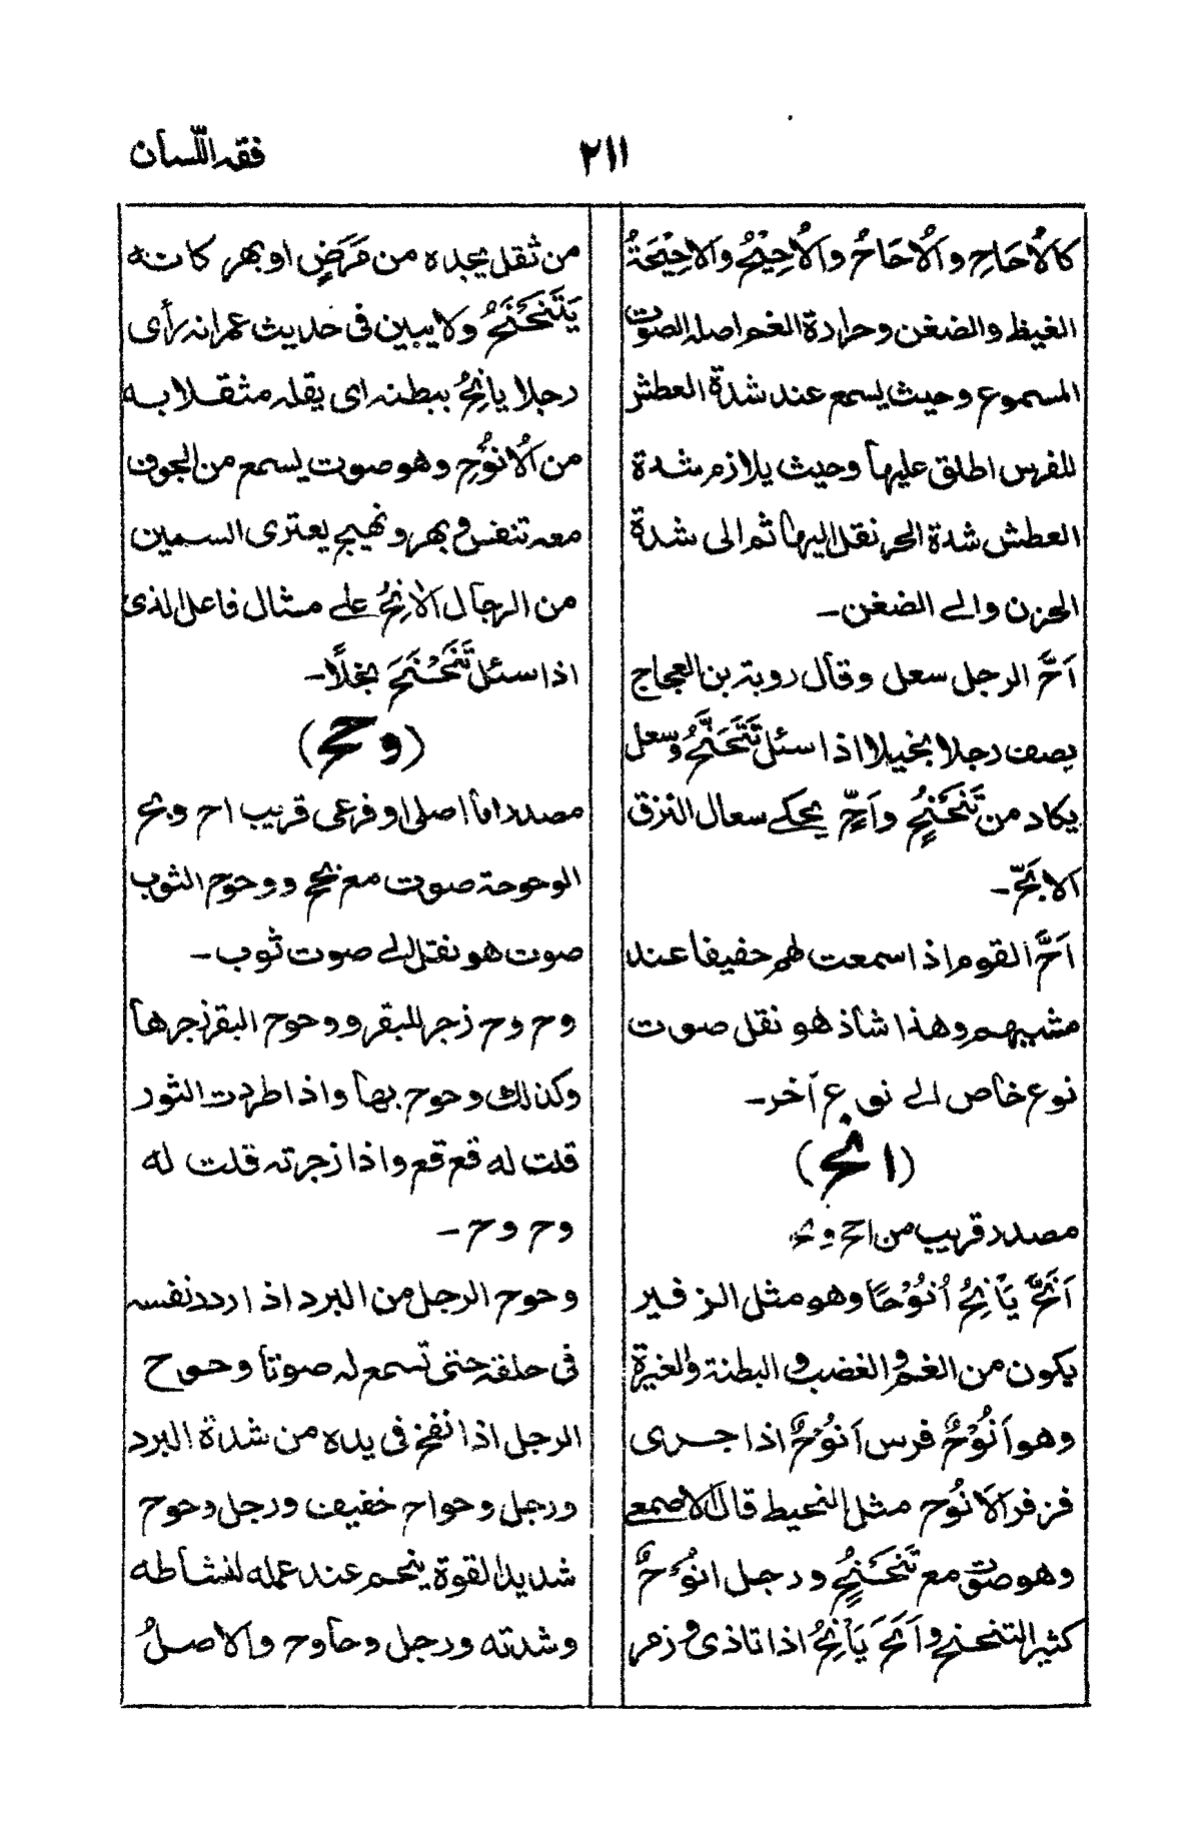 فقہ اللّسان
٢١١
كالأُحَاحِ والأُحَاحُ والأُحِيْحُ والاحِيْحَةُ
الغيظ والضغن وحرارة الغم اصله الصوت
المسموع وحيث يسمع عند شدة العطش
للفرس اطلق عليها وحيث يلازم شدة
العطش شدة الحر نقل اليها ثم الى شدة
الحزن والى الضغن۔
اَحَّ الرجل سعل وقال روبة بن العجاج
يصف رجلا بخيلا اذا سئل تَنَحْنَحُ وسعل
يكاد من تَنَحْنُحٍ واَحٍّ يحكى سعال النزق
الابَحّ۔
اَحَّ القوم اذا سمعت لهم حفيفا عند
مشيهم وهذا شاذ هو نقل صوت
نوع خاص الى نوع آخر۔
(انح)
مصدر قريب من احّ و
اَنَحَّ يَأْنِحُ اُنُوْحًا وهو مثل الزفير
يكون من الغم والغضب والبطنة والغيرة
وهو اَنُوْحٌ فرس اَنُوْحٌ اذا جرى
فزفر الَانُوح مثل النحيط قال الاصمعى
وهو صوت مع تَنَحْنُحٍ ورجل انُوْحٌ
كثير التنحنح واَنَحَ يَأنِحُ اذا تاذى وزمر
من ثقل يجده من مَرَضٍ او بهر كانه
يَتَنَحْنَحُ ولا يبين فى حديث عمر انه رأى
رجلا يانِحُ ببطنه اى يقله مثقلا به
من الأنوُحِ وهو صوت يسمع من الجوف
معه تنفس وبهر ونهيج يعترى السمين
من الرجال الانِحُ على مثال فاعل الذى
اذا سئل تَنَحْنَحَ بخلًا۔
(وحح)
مصدر اما اصلى او فرعى قريب اح وبح
الوحوحة صوت مع بحح ووحوح الثوب
صوت هو نقل الى صوت ثوب۔
وح وح زجر للبقر ووحوح البقر زجرها
وكذلك وحوح بها واذا طردت الثور
قلت له قع قع واذا زجرته قلت له
وح وح۔
وحوح الرجل من البرد اذا ردد نفسه
فى حلقه حتى تسمع له صوتا وحوح
الرجل اذا نفخ فى يده من شدة البرد
ورجل وحواح خفيف ورجل وحوح
شديد القوة ينحم عند عمله لنشاطه
وشدته ورجل وحاوح والاصلُ